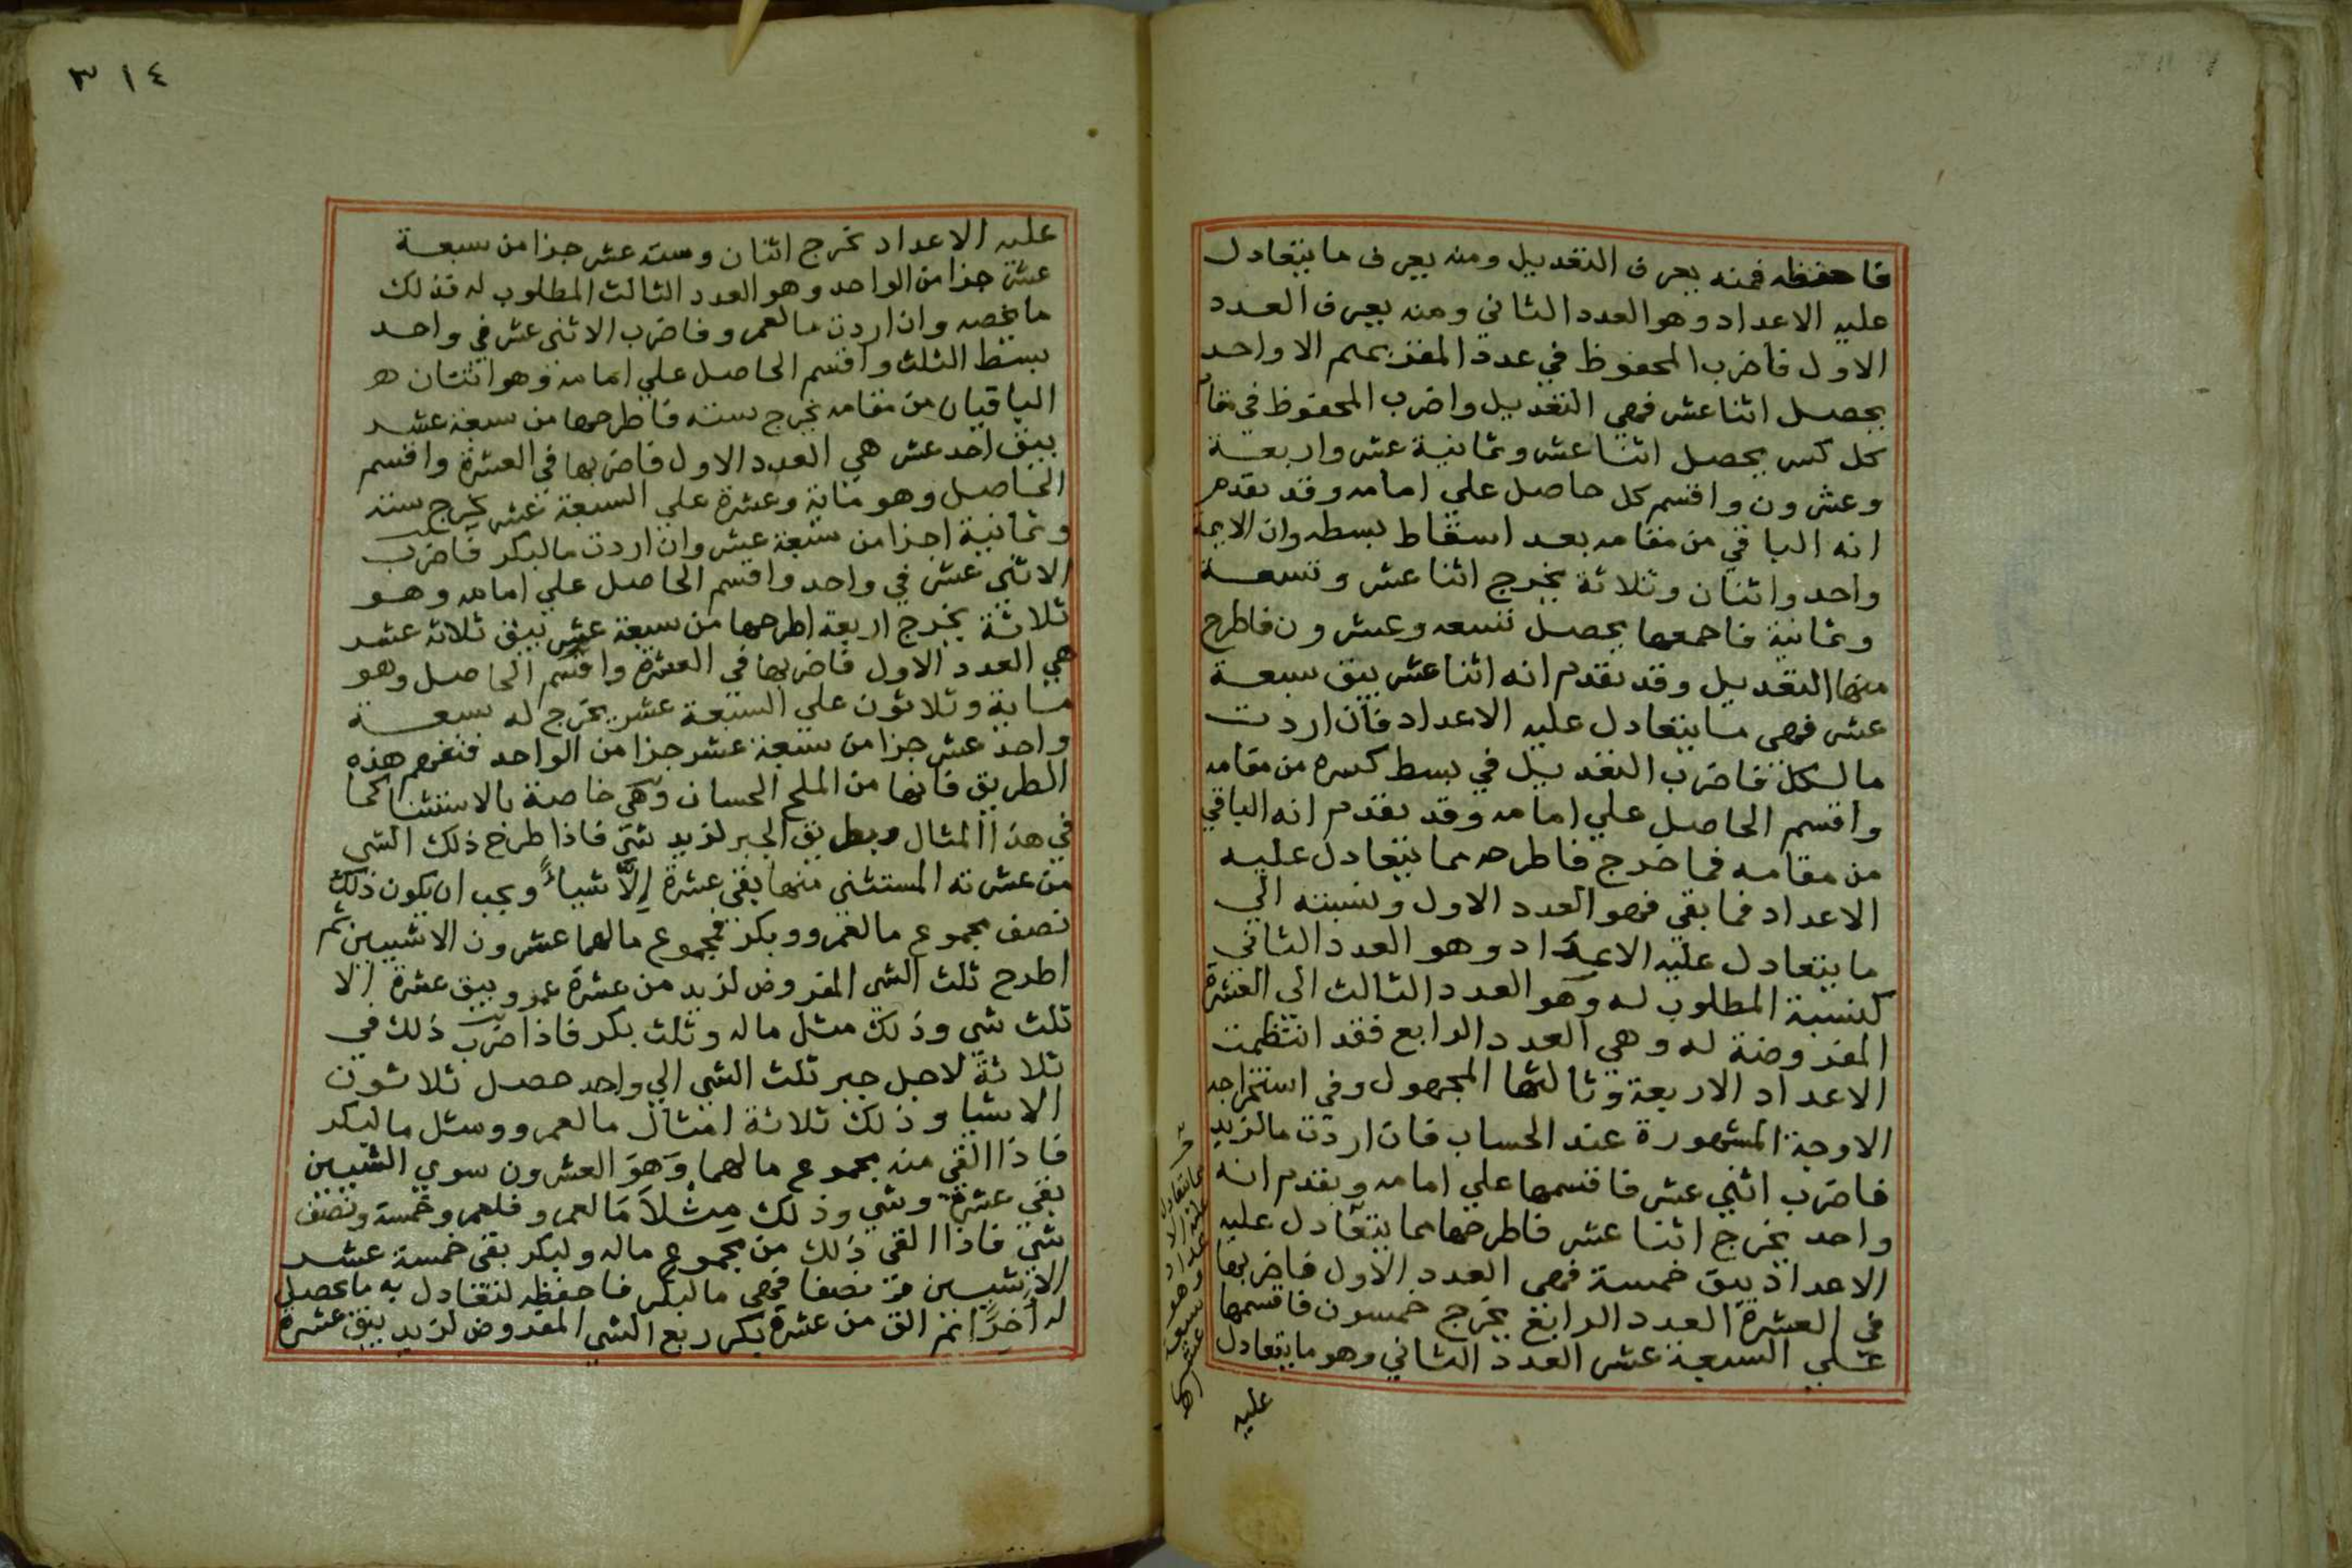 فاحفظه فمنه يعرف التعديل ومنه يعرف ما يتعادل
عليه الاعداد وهو العدد الثاني ومنه يعرف العدد
الاول فاضرب المحفوظ في عدة المقر بهم الا واحد
يحصل اثنا عشر فهي التعديل واضرب المحفوظ في مقام
كل كسر يحصل اثنا عشر وثمانية عشر واربعة
وعشرون واقسم كل حاصل علي امامه وقد تقدم
انه الباقي من مقامه بعد اسقاط بسطه وان الايمة
واحد واثنان وثلاثة يخرج اثنا عشر وتسعة
وثمانية فاجمعها يحصل تسعه وعشرون فاطرح
منها التعديل وقد تقدم انه اثنا عشر يبق سبعة
عشر فهي ما يتعادل عليه الاعداد فان اردت
ما لكل فاضرب التعديل في بسط كسره من مقامه
واقسم الحاصل علي امامه وقد تقدم انه الباقي
من مقامه فما خرج فاطرحه مما يتعادل عليه
الاعداد فما بقي فهو العدد الاول ونسبته الي
ما يتعادل عليه الاعداد وهو العدد الثاني
كنسبة المطلوب له وهو العدد الثالث الي العشرة
المفروضة له وهي العدد الرابع فقد انتظمت
الاعداد الاربعة وثالثها المجهول وفي استخراجه
الاوجة المشهورة عند الحساب فان اردت ما لزيد
فاضرب اثني عشر فاقسمها علي امامه وتقدم انه
واحد يخرج اثنا عشر فاطرحها مما يتعادل عليه
الاعداد يبق خمسة فهي العدد الاول فاضربها
في العشرة العدد الرابع يخرج خمسون فاقسمها
علي السبعة عشر العدد الثاني وهو ما يتعادل
عليه
ما يتعادل
عليه الا
عداد
وهو
سبعة
عشر
٣١٤
عليه الاعداد يخرج اثنان وستة عشر جزا من سبعة
عشر جزا من الواحد وهو العدد الثالث المطلوب له فذلك
ما يخصه وان اردت ما لعمرو فاضرب الاثني عشر في واحد
بسط الثلث واقسم الحاصل علي امامه وهو اثنان هـ
الباقيان من مقامه يخرج ستة فاطرحها من سبعة عشر
يبق احد عشر هي العدد الاول فاضربها في العشرة واقسم
الحاصل وهو ماية وعشرة علي السبعة عشر يخرج ستة
وثمانية اجزا من سبعة عشر وان اردت ما لبكر فاضرب
الاثني عشر في واحد واقسم الحاصل علي امامه وهو
ثلاثة يخرج اربعة اطرحها من سبعة عشر يبق ثلاثة عشر
هي العدد الاول فاضربها في العشرة واقسم الحاصل وهو
ماية وثلاثون علي السبعة عشر يخرج له سبعة
واحد عشر جزا من سبعة عشر جزا من الواحد فتفهم هذه
الطريق فانها من الملح الحسان وهي خاصة بالاستثنا كما
في هذا المثال وبطريق الجبر لزيد شي فاذا طرح ذلك الشي
من عشرته المستثنى منها بقي عشرة إلَّا شياءً ويجب ان يكون ذلك
نصف مجموع ما لعمرو وبكر فمجموع ما لهما عشرون الا شيين ثم
اطرح ثلث الشي المفروض لزيد من عشرة عمرو يبق عشرة الا
ثلث شي وذلك مثل ماله وثلث بكر فاذا ضرب ذلك في
ثلاثة لاجل جبر ثلث الشي الي واحد حصل ثلاثون
الا شيا وذلك ثلاثة امثال ما لعمرو ومثل ما لبكر
فاذا القي منه مجموع ما لهما وَهوَ العشرون سوي الشيين
بقي عشرة وشي وذلك مِثْلاَ مَا لعمرو فلعمرو خمسة ونصف
شي فاذا القي ذلك من مجموع ماله ولبكر بقي خمسة عشر
الا شيين ونصفا فهي ما لبكر فاحفظه لتعادل به ما يحصل
له اخرًا ثم الق من عشرة بكر ربع الشي المفروض لزيد يبق عشرة